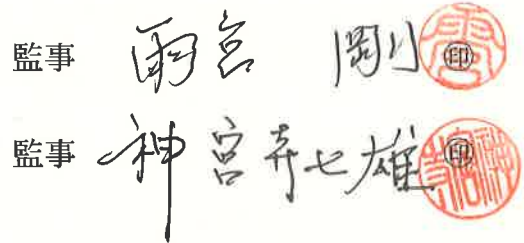 監事 雨宮 剛 ㊞
監事 神宮寺七雄 ㊞